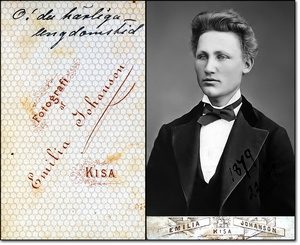 O! du härliga
ungdomstid
Fotografi
af
Emilia Johanson
KISA
1879
EMILIA
KISA
JOHANSON